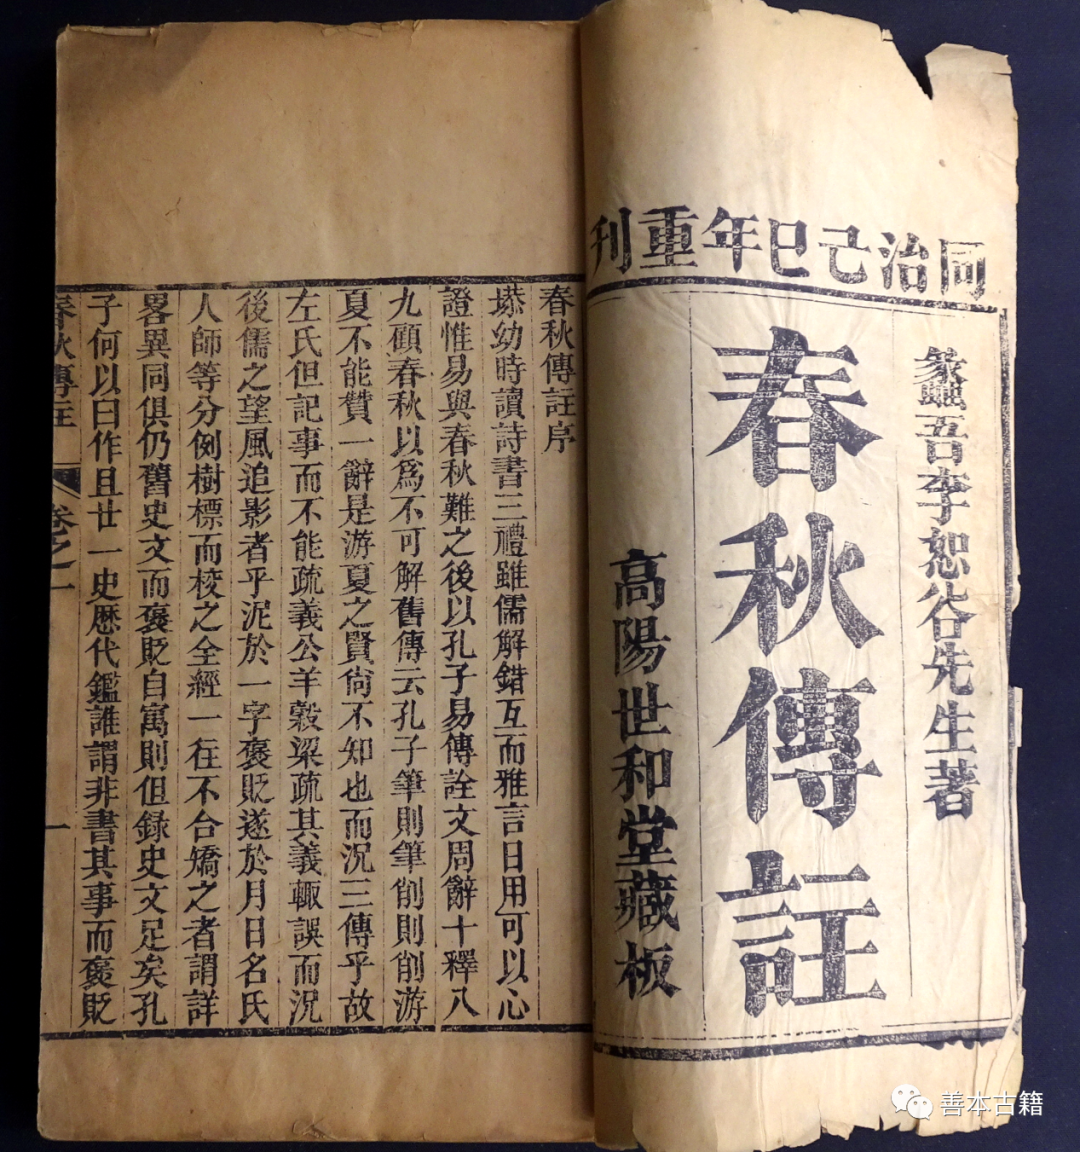 同治己巳年重刊
蠡吾李恕谷先生著
春秋傳註
高陽世和堂藏板
春秋傳註序
塨幼時讀詩書三禮雖儒解錯互而雅言日用可以心
證惟易與春秋難之後以孔子易傳詮文周辭十釋八
九顧春秋以爲不可解舊傳云孔子筆則筆削則削游
夏不能贊一辭是游夏之賢尙不知也而況三傳乎故
左氏但記事而不能疏義公羊穀梁疏其義輙誤而況
後儒之望風追影者乎泥於一字褒貶遂於月日名氏
人師等分例樹標而校之全經一往不合矯之者謂詳
畧異同俱仍舊史文而褒貶自寓則但錄史文足矣孔
子何以曰作且廿一史歴代鑑誰謂非書其事而褒貶
春秋傳註
卷之一
一
善本古籍